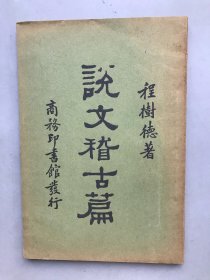 程樹德著
說文稽古篇
商務印書館發行